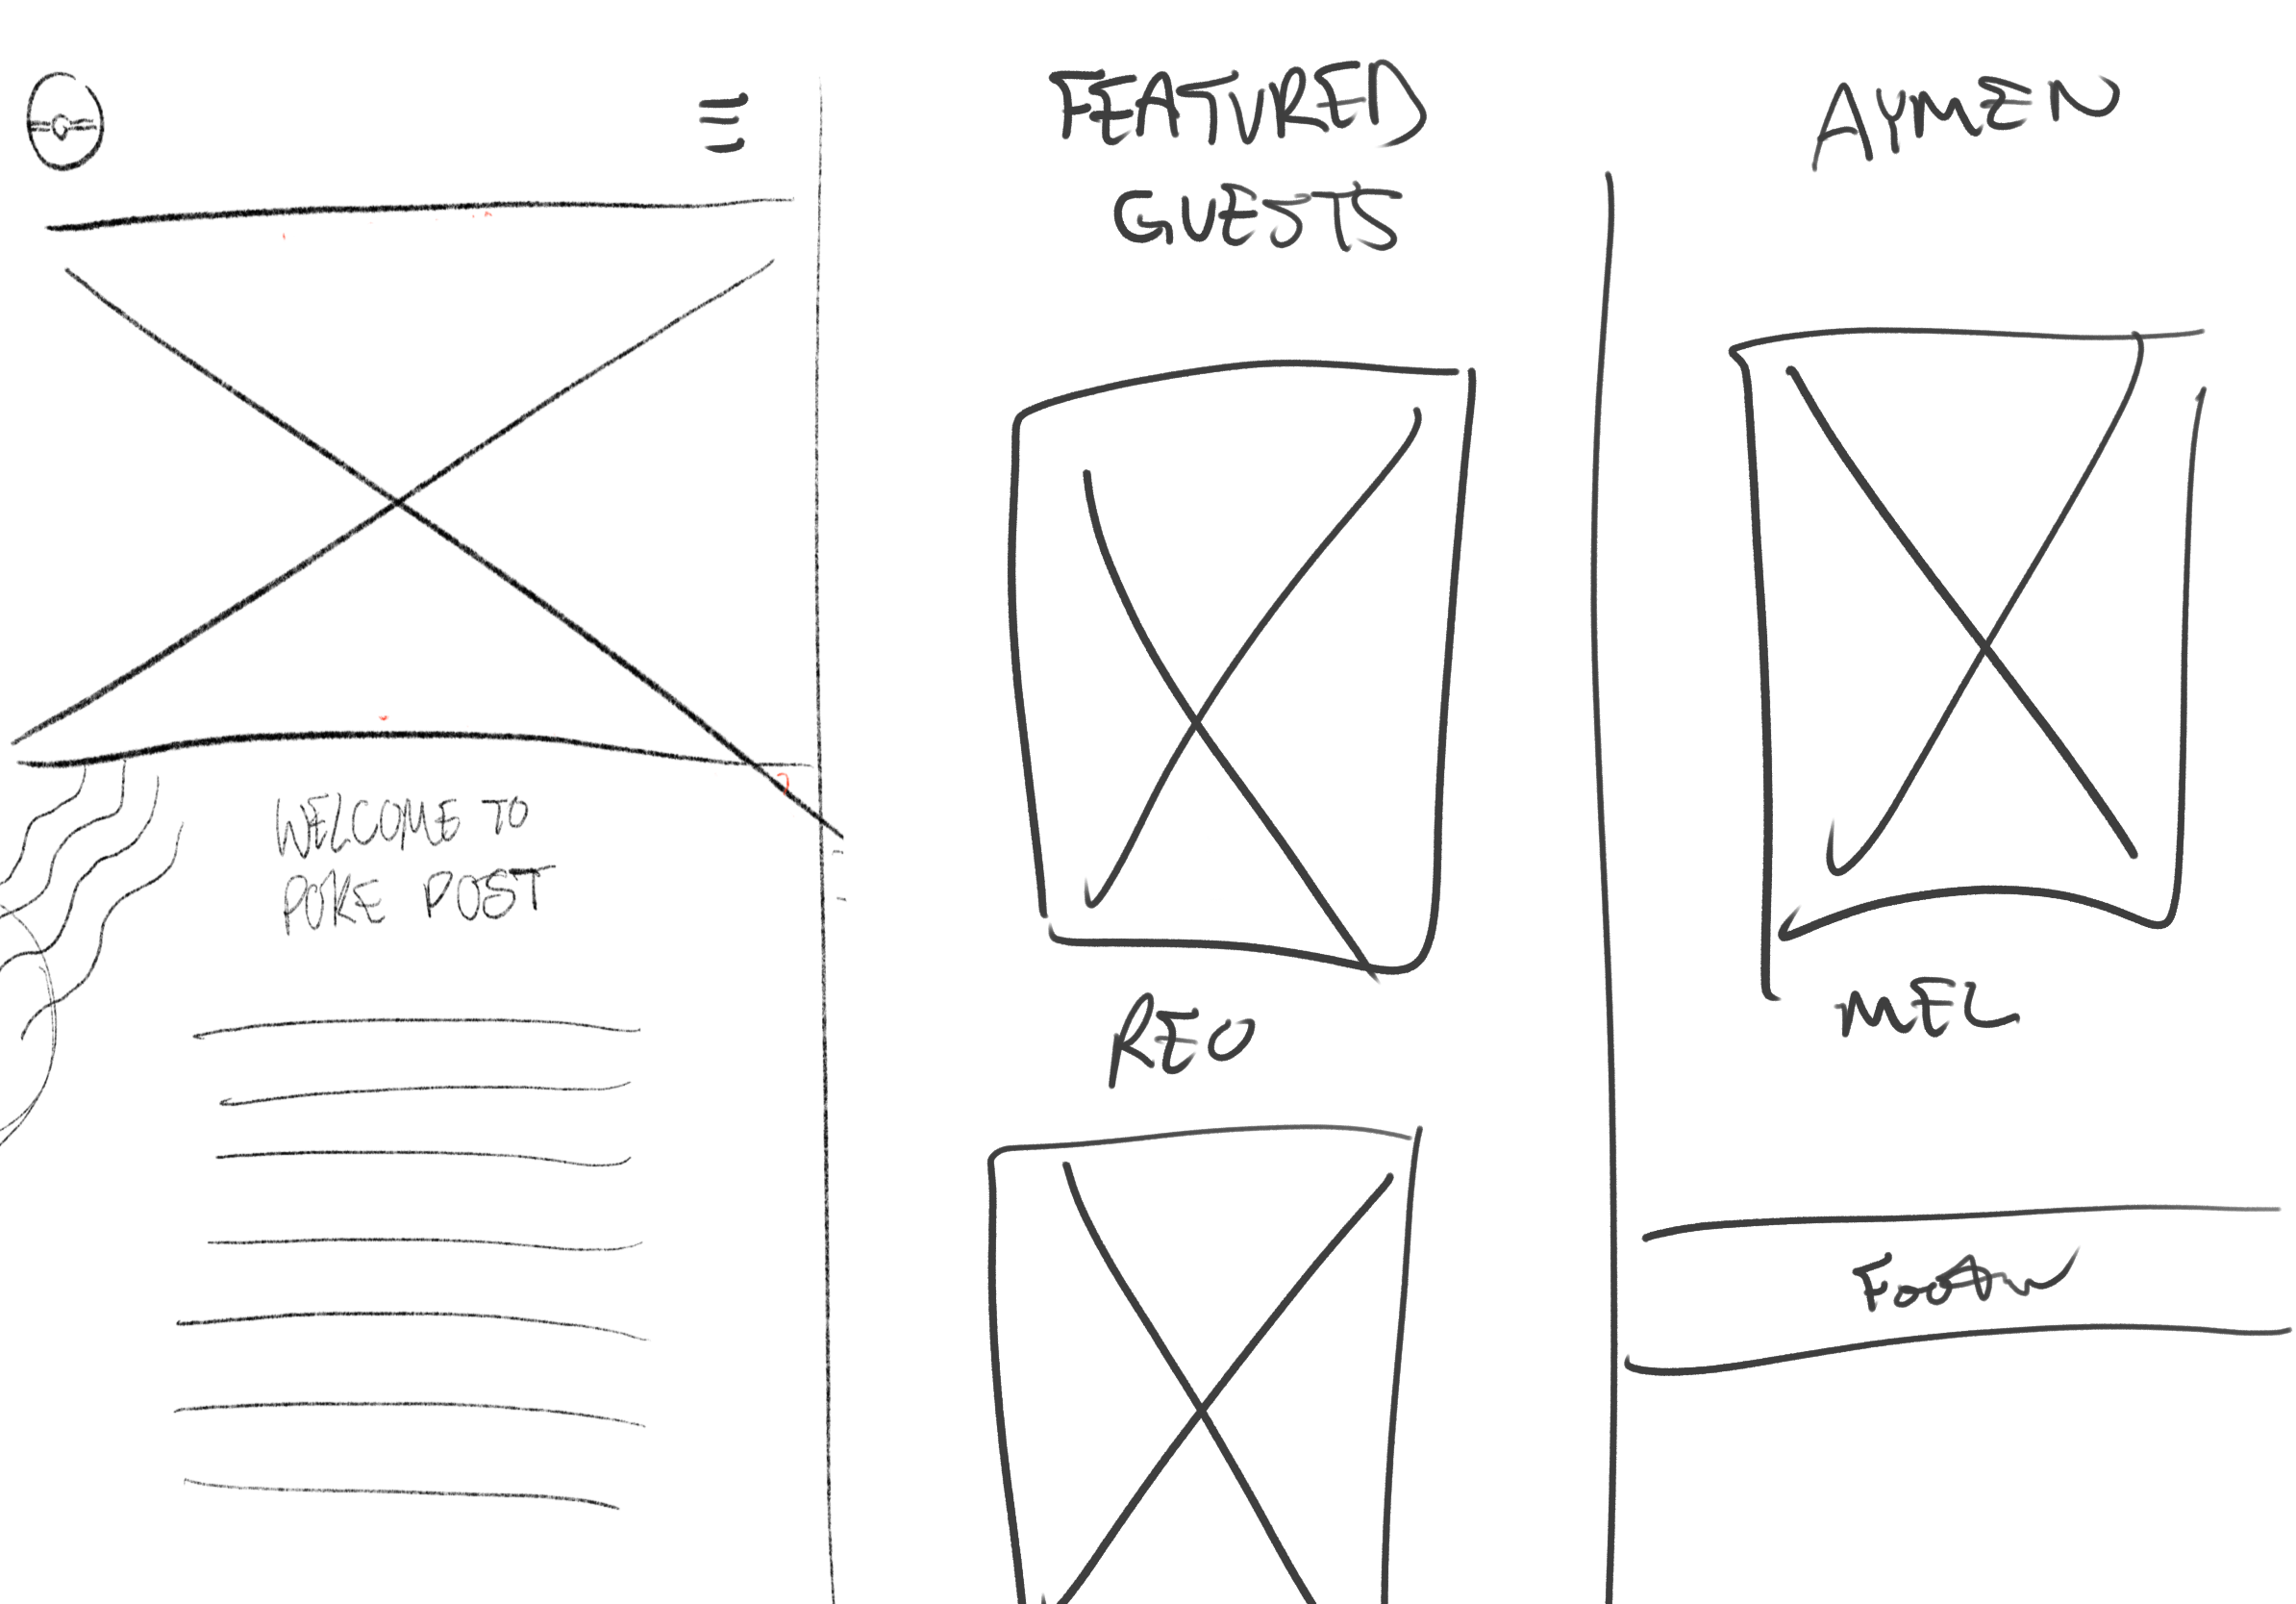 WELCOME TO
POKE POST
FEATURED
GUESTS
REO
AYMEN
MEL
Footer